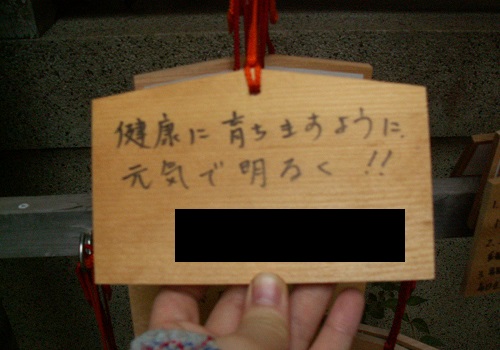 健康に育ちますように、
元気で明るく!!